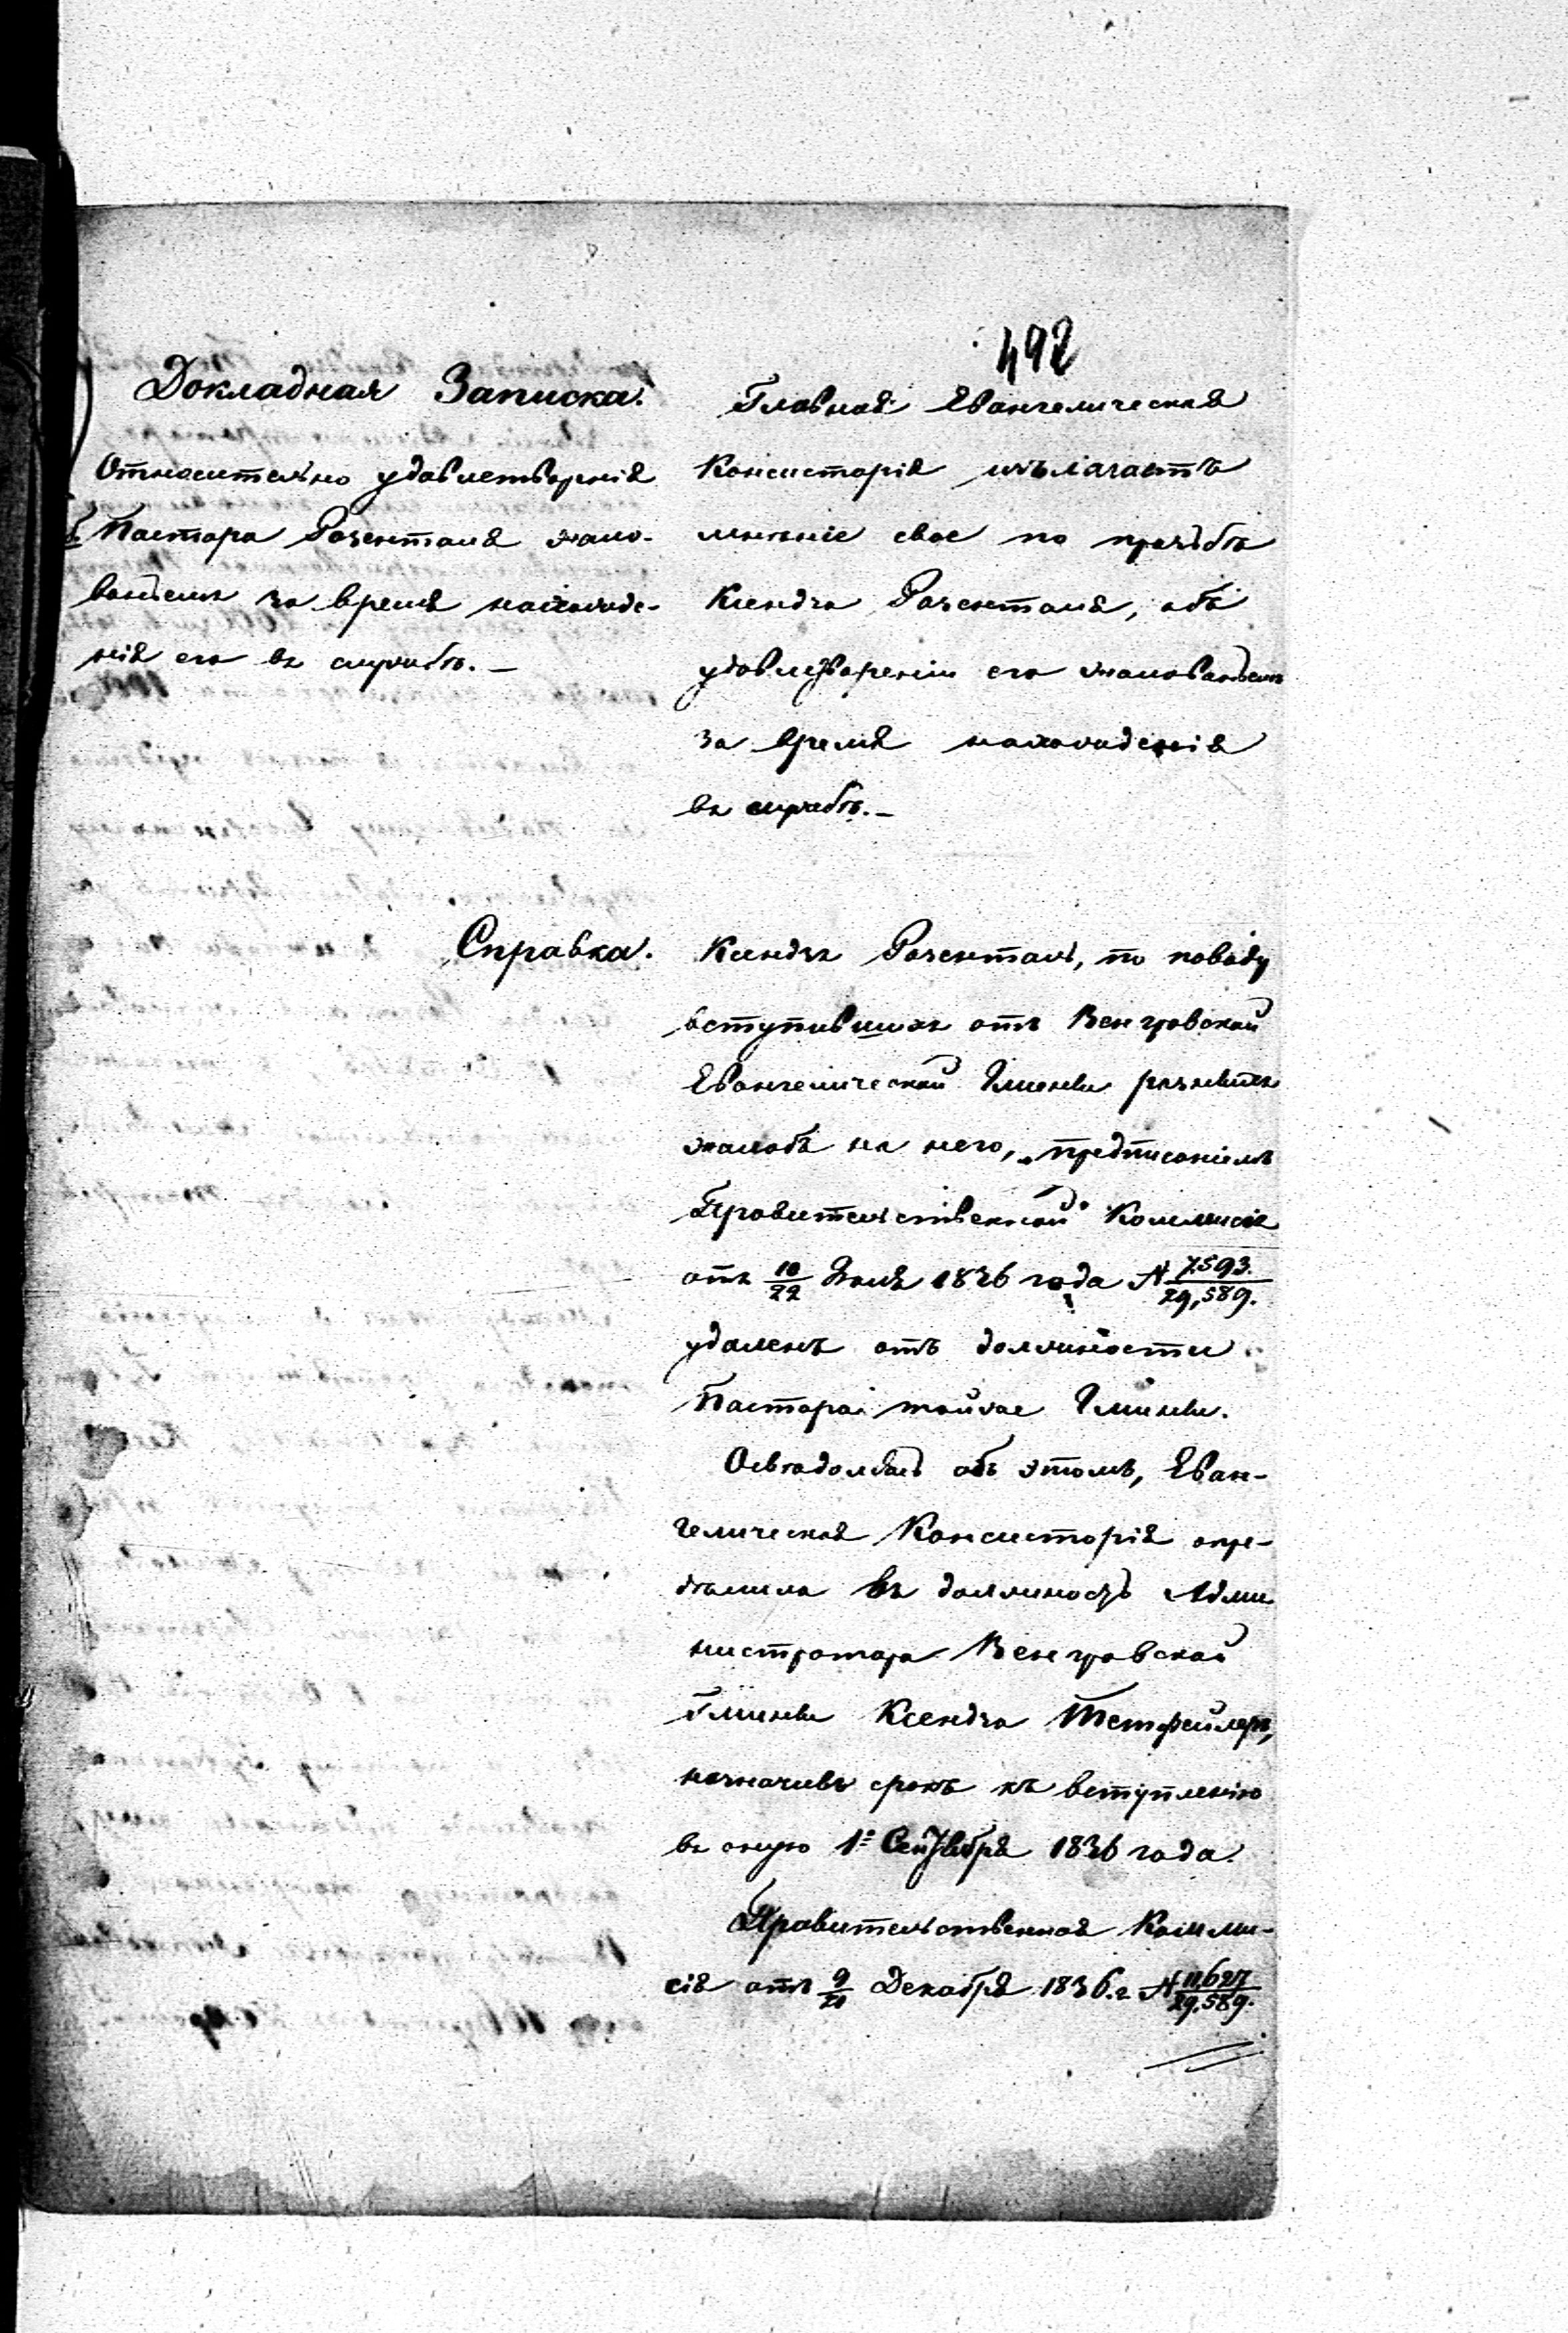 492
Докладная Записка.
Относительно удовлетворенія
Пастора Розенталя жало-
ваньемъ за время нахожде-
нія его въ службѣ. —
Главная Евангелическая
Консисторія излагаетъ
мнѣніе свое по прозьбѣ
Ксендза Розенталя, объ
удовлетвореніи его жалованьемъ
за время нахожденія
въ службѣ. —
Справка.
Ксендзъ Розенталь, по поводу
вступившихъ отъ Венгровской
Евангелической Гмины разныхъ
жалобъ на него, предписаніемъ
Правительственной Коммисіи
отъ 10/22 Іюля 1836 года № 7593/29,589.
удаленъ отъ должности
Пастора тойже Гмины.
Освѣдомясь объ этомъ, Еван-
гелическая Консисторія опре-
дѣлила въ должность Адми-
нистратора Венгровской
Гмины Ксендза
назначивъ срокъ къ вступленію
въ оную 1е Сентября 1836 года.
Правительственная Комми-
сія отъ 9/21 Декабря 1836 г. № 11,627/29,589.